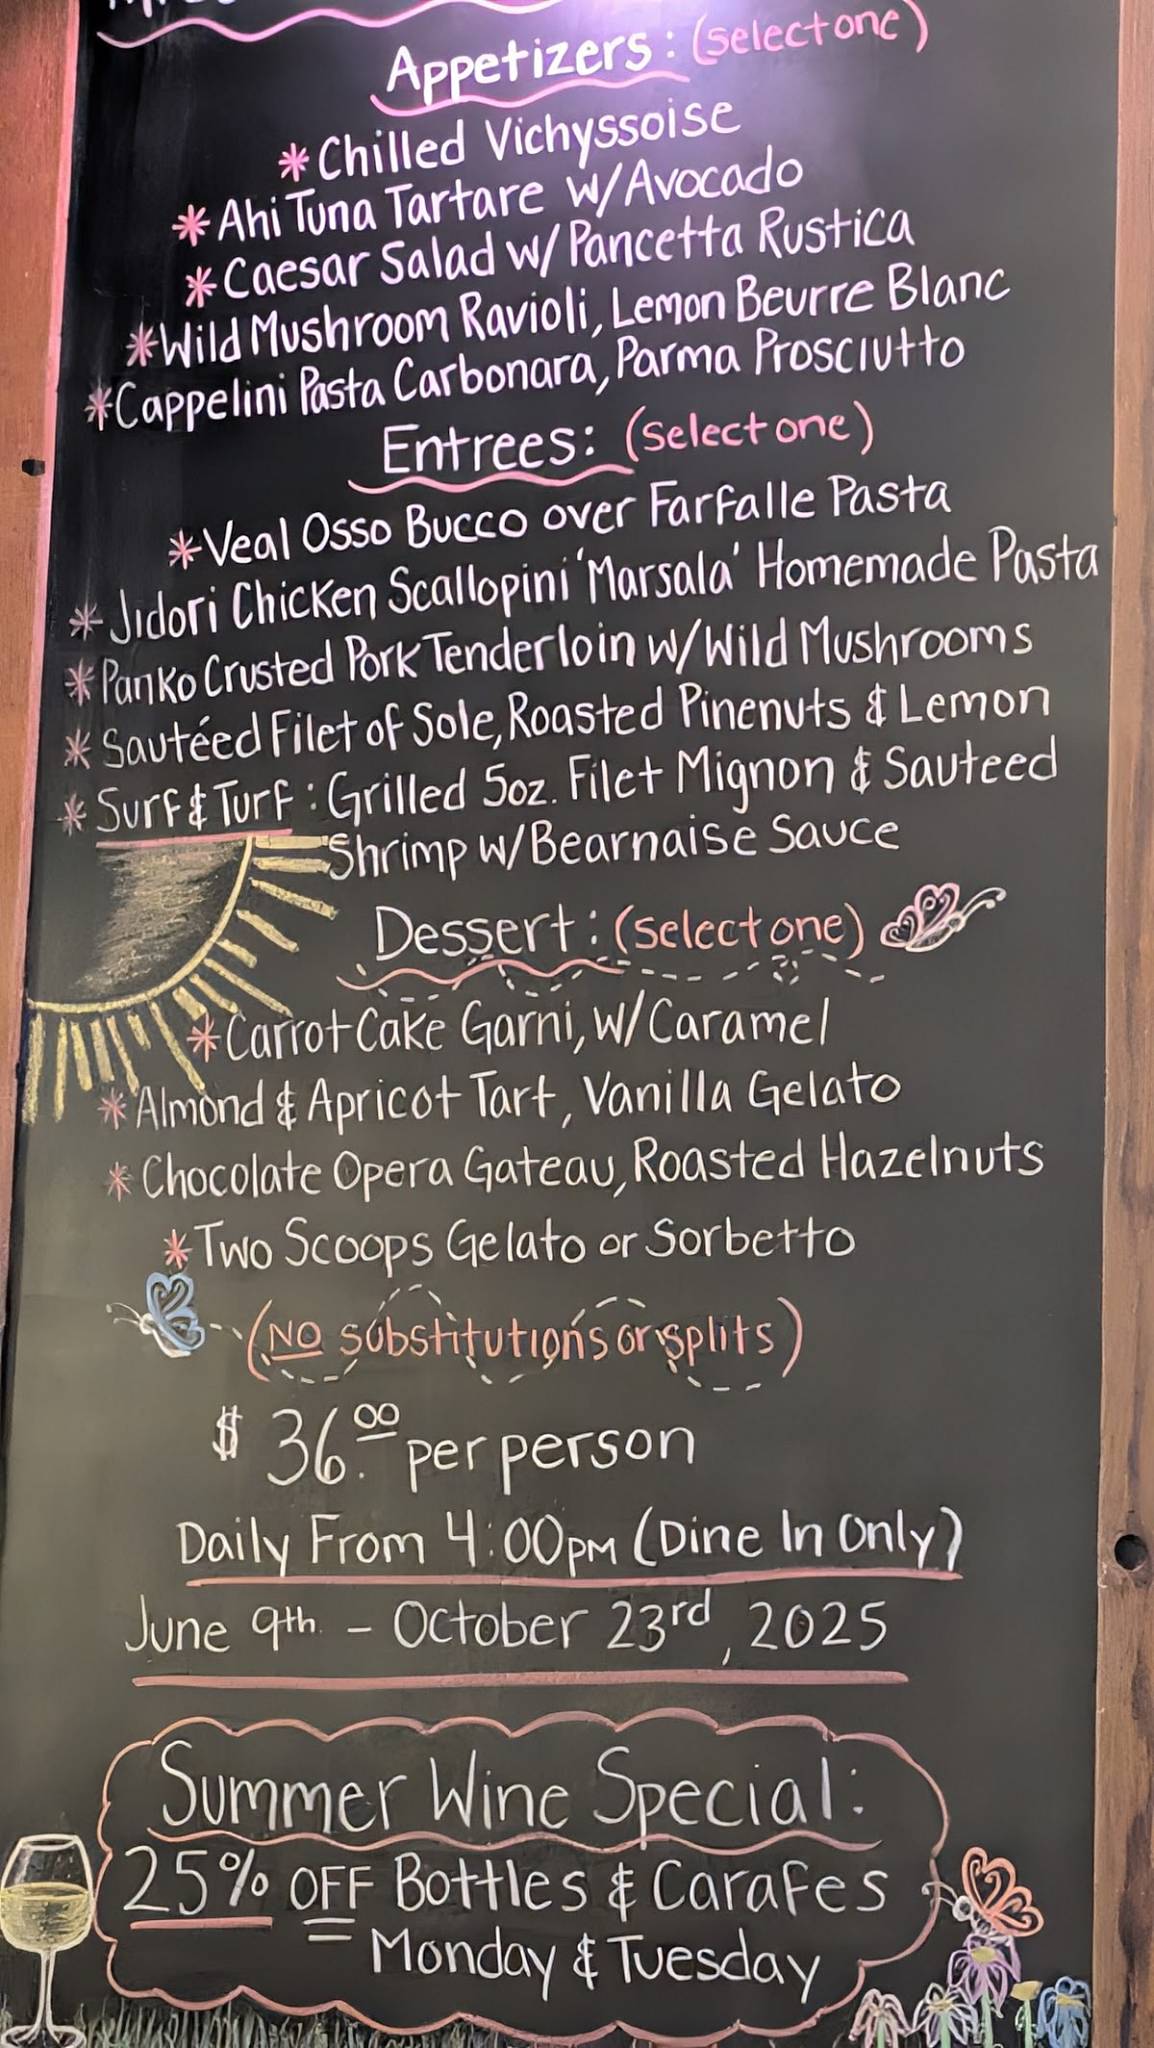 Appetizers: (select one)
*Chilled Vichyssoise
*Ahi Tuna Tartare w/Avocado
*Caesar Salad w/Pancetta Rustica
*Wild Mushroom Ravioli, Lemon Beurre Blanc
*Cappelini Pasta Carbonara, Parma Prosciutto
Entrees: (select one)
*Veal Osso Bucco over Farfalle Pasta
*Jidori Chicken Scallopini 'Marsala' Homemade Pasta
*Panko Crusted Pork Tenderloin w/Wild Mushrooms
*Sautéed Filet of Sole, Roasted Pinenuts & Lemon
*Surf & Turf: Grilled 5oz. Filet Mignon & Sauteed
Shrimp w/Bearnaise Sauce
Dessert: (select one)
*Carrot Cake Garni, w/Caramel
*Almond & Apricot Tart, Vanilla Gelato
*Chocolate Opera Gateau, Roasted Hazelnuts
*Two Scoops Gelato or Sorbetto
(NO substitutions or splits)
$36.00 per person
Daily From 4:00PM (Dine In Only)
June 9th - October 23rd, 2025
Summer Wine Special:
25% OFF Bottles & Carafes
Monday & Tuesday